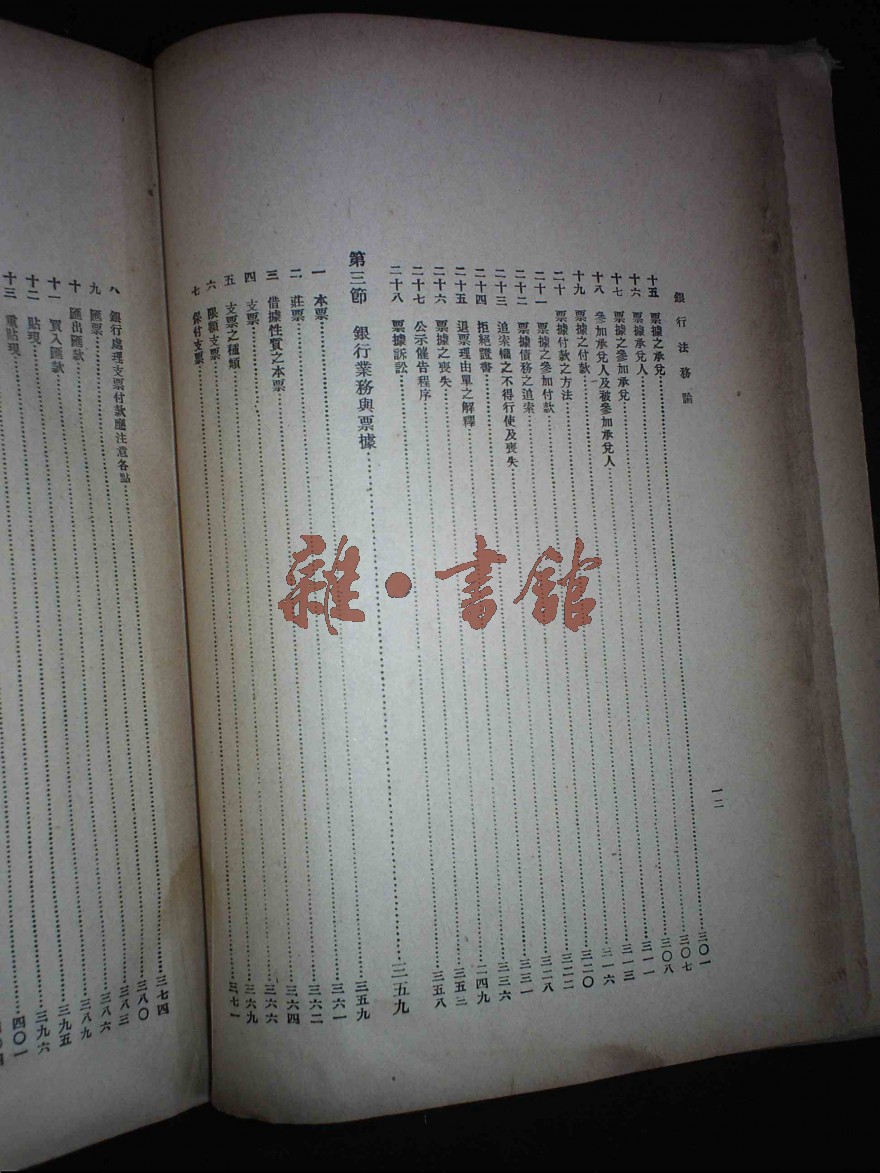 銀行法務論
十五 票據之承兌 三〇一
十六 票據承兌人 三〇七
十七 票據之參加承兌 三〇八
十八 參加承兌人及被參加承兌人 三一一
十九 票據之付款 三一三
二十 票據付款之方法 三一六
二十一 票據之參加付款 三二〇
二十二 票據債務之追索 三二二
二十三 追索權之不得行使及喪失 三二八
二十四 拒絕證書 三三一
二十五 退票理由單之解釋 三三六
二十六 票據之喪失 三四九
二十七 公示催告程序 三五三
二十八 票據訴訟 三五八
第三節 銀行業務與票據 三五九
一 本票 三五九
二 莊票 三六一
三 借據性質之本票 三六二
四 支票 三六四
五 支票之種類 三六六
六 限額支票 三六九
七 保付支票 三七一
一二
八 銀行處理支票付款應注意各點 三七四
九 匯票 三八〇
十 匯出匯款 三八三
十一 買入匯款 三八六
十二 貼現 三八九
十三 重貼現 三九五
三九六
四〇一
雜·書館